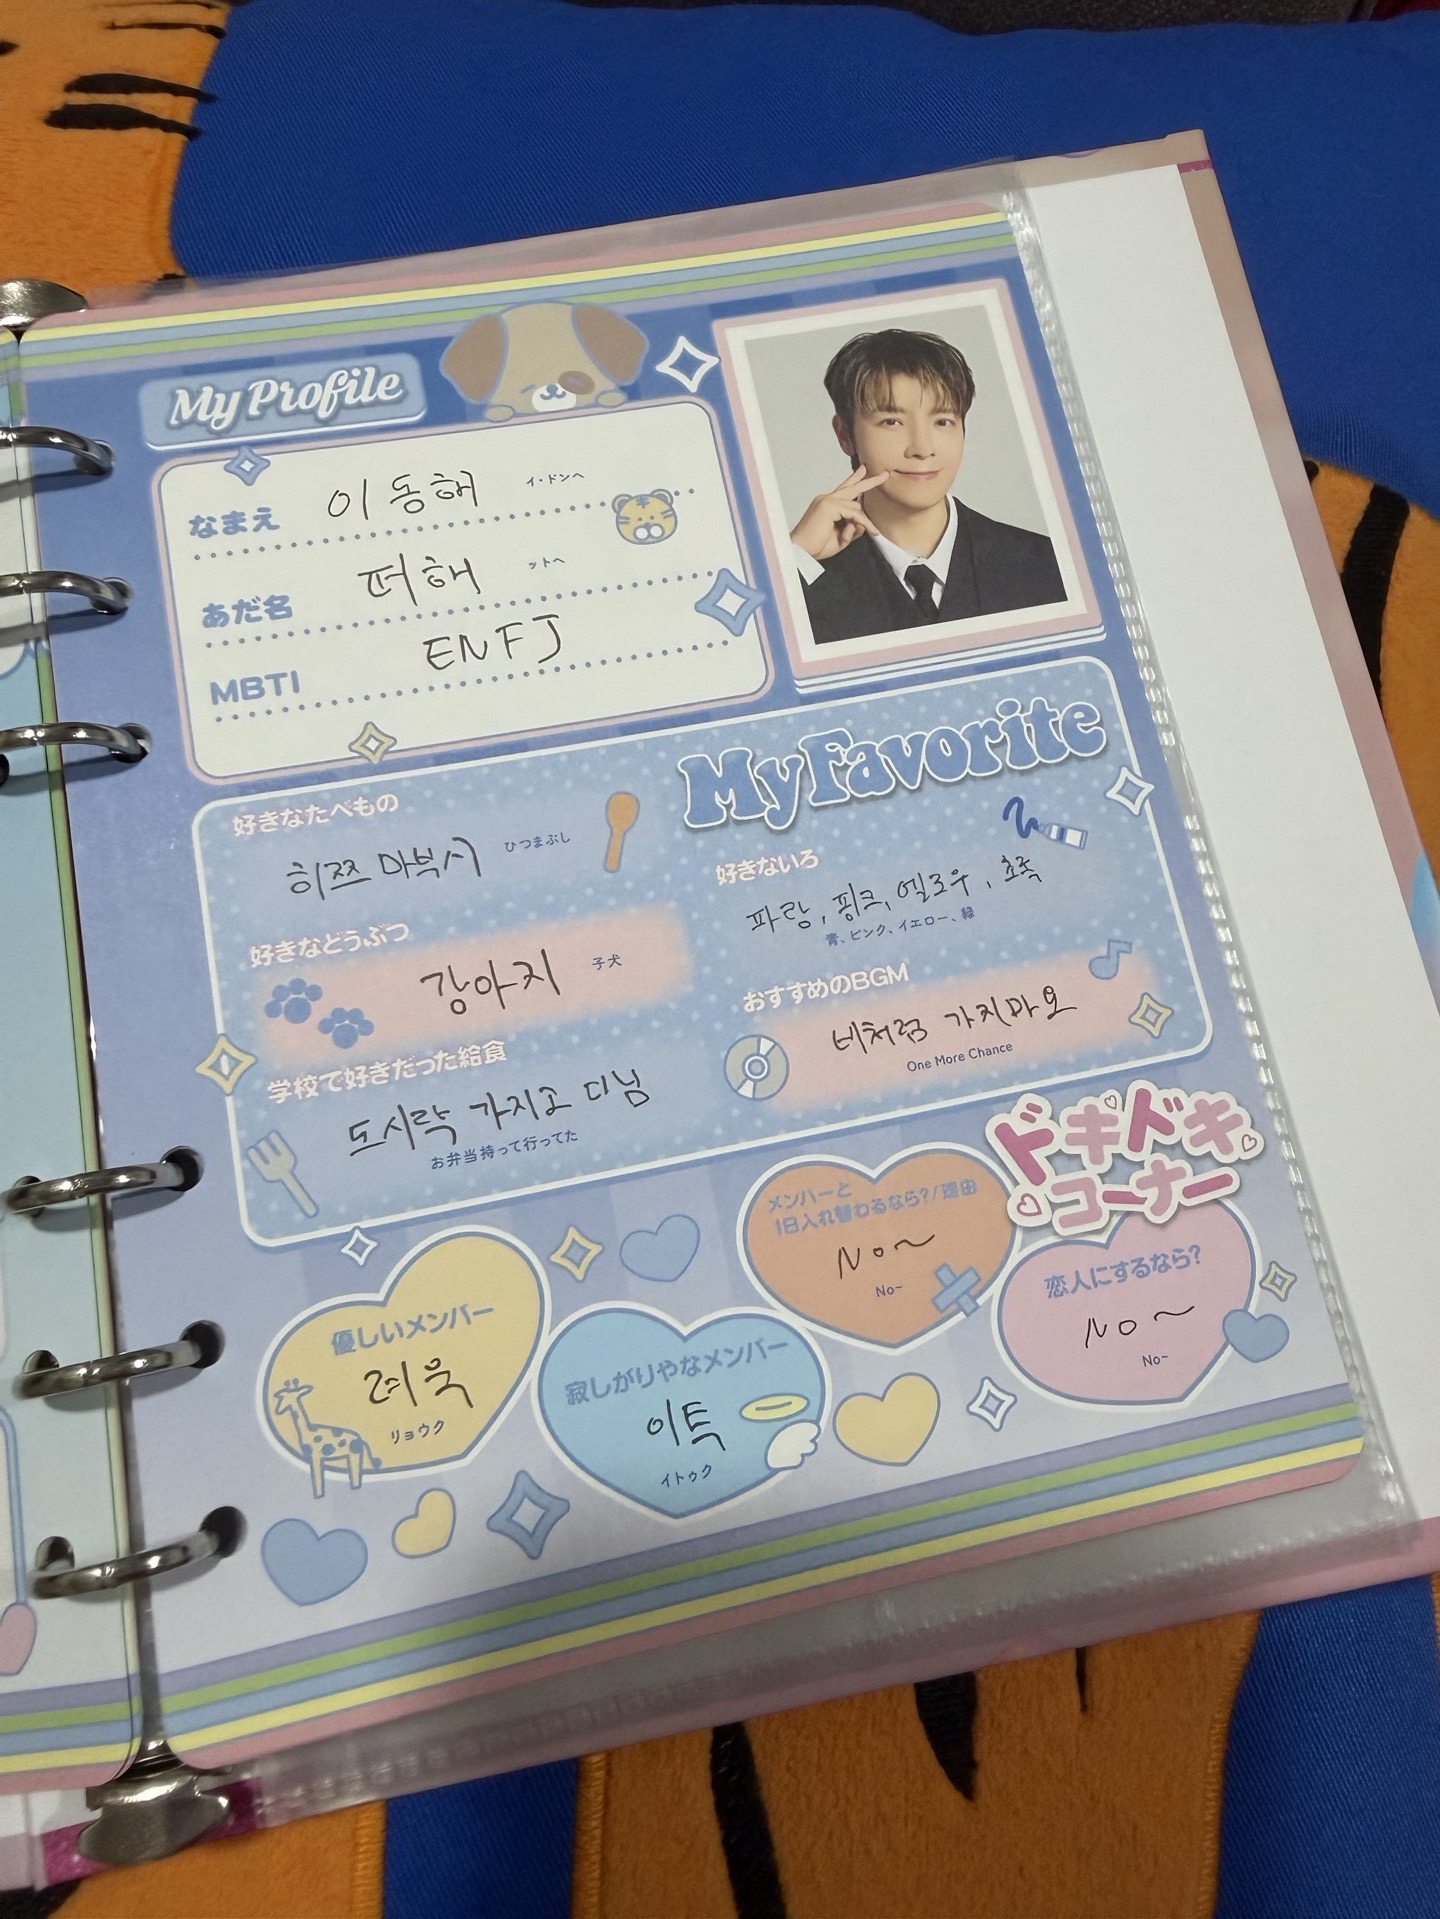 My Profile
なまえ 이동해 イ・ドンへ
あだ名 떠해 ットへ
MBTI ENFJ
My Favorite
好きなたべもの
히쯔마부시 ひつまぶし
好きなどうぶつ
강아지 子犬
学校で好きだった給食
도시락 가지고 다님
お弁当持って行ってた
好きないろ
파랑, 핑크, 옐로우, 초록
青、ピンク、イエロー、緑
おすすめのBGM
비처럼 가지마요
One More Chance
ドキドキ
コーナー
メンバーと
1日入れ替わるなら?/理由
No~
No~
恋人にするなら?
No~
No~
優しいメンバー
려욱
リョウク
寂しがりやなメンバー
이특
イトゥク